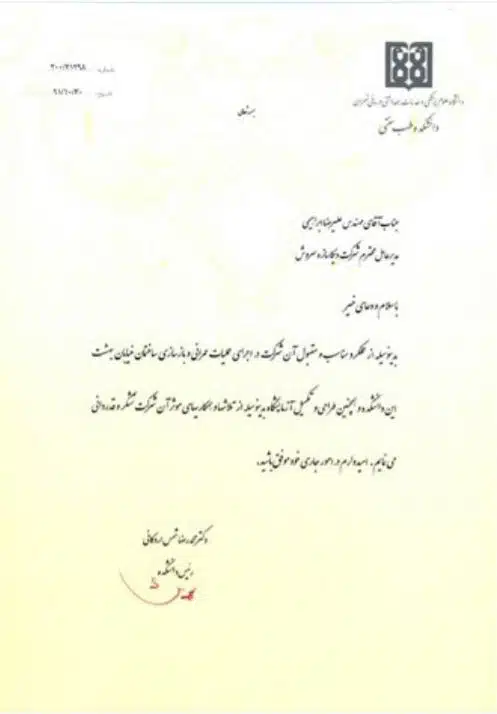 شماره: ۲۰۰/۳۱۲۹۸
تاریخ: ۹۱/۱۰/۳۰
دانشگاه علوم پزشکی و خدمات بهداشتی درمانی تهران
دانشکده طب سنتی
بسمه تعالی
جناب آقای مهندس علیرضا ابراهیمی
مدیرعامل محترم شرکت دیکا سازه سروش
با سلام و دعای خیر
بدینوسیله از عملکرد مناسب و مقبول آن شرکت در اجرای عملیات عمرانی و بازسازی ساختمان خیابان بهشت
این دانشکده و همچنین طراحی و تکمیل آزمایشگاه بدینوسیله از تلاشها و همکاریهای موثر آن شرکت تشکر و قدردانی
می نمایم. امیدوارم در امور جاری خود موفق باشید.
دکتر محمدرضا شمس اردکانی
رئیس دانشکده